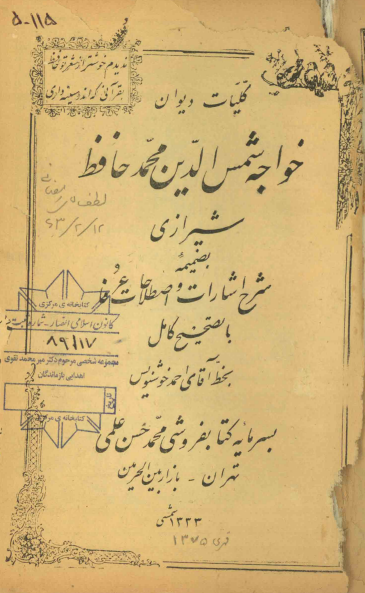 ۵-۱۱۵
ندیدم خوشتر از شعر تو حافظ
بقرآنی که اندر سینه داری
کلیات دیوان
خواجه شمس الدین محمد حافظ
شیرازی
بضمیمه
شرح اشارات و اصطلاحات
با تصحیح کامل
بخط آقای احمد خوشنویس
بسرمایه کتابفروشی محمد حسن علمی
تهران - بازار بین الحرمین
۱۳۳۳ شمسی
قمری ۱۳۷۵
لطف
۶۳/۲/۱۲
کتابخانه ی مرکزی
کانون اسلامی انصار - شماره ثبت
۸۹/۱۷
مجموعه شخصی مرحوم دکتر میر محمد تقوی
اهدایی بازماندگان
تاریخ
کتابخانه ی مرکزی